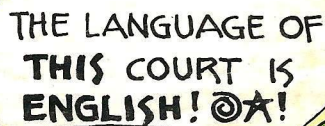 THE LANGUAGE OF
THIS COURT IS
ENGLISH! @★!